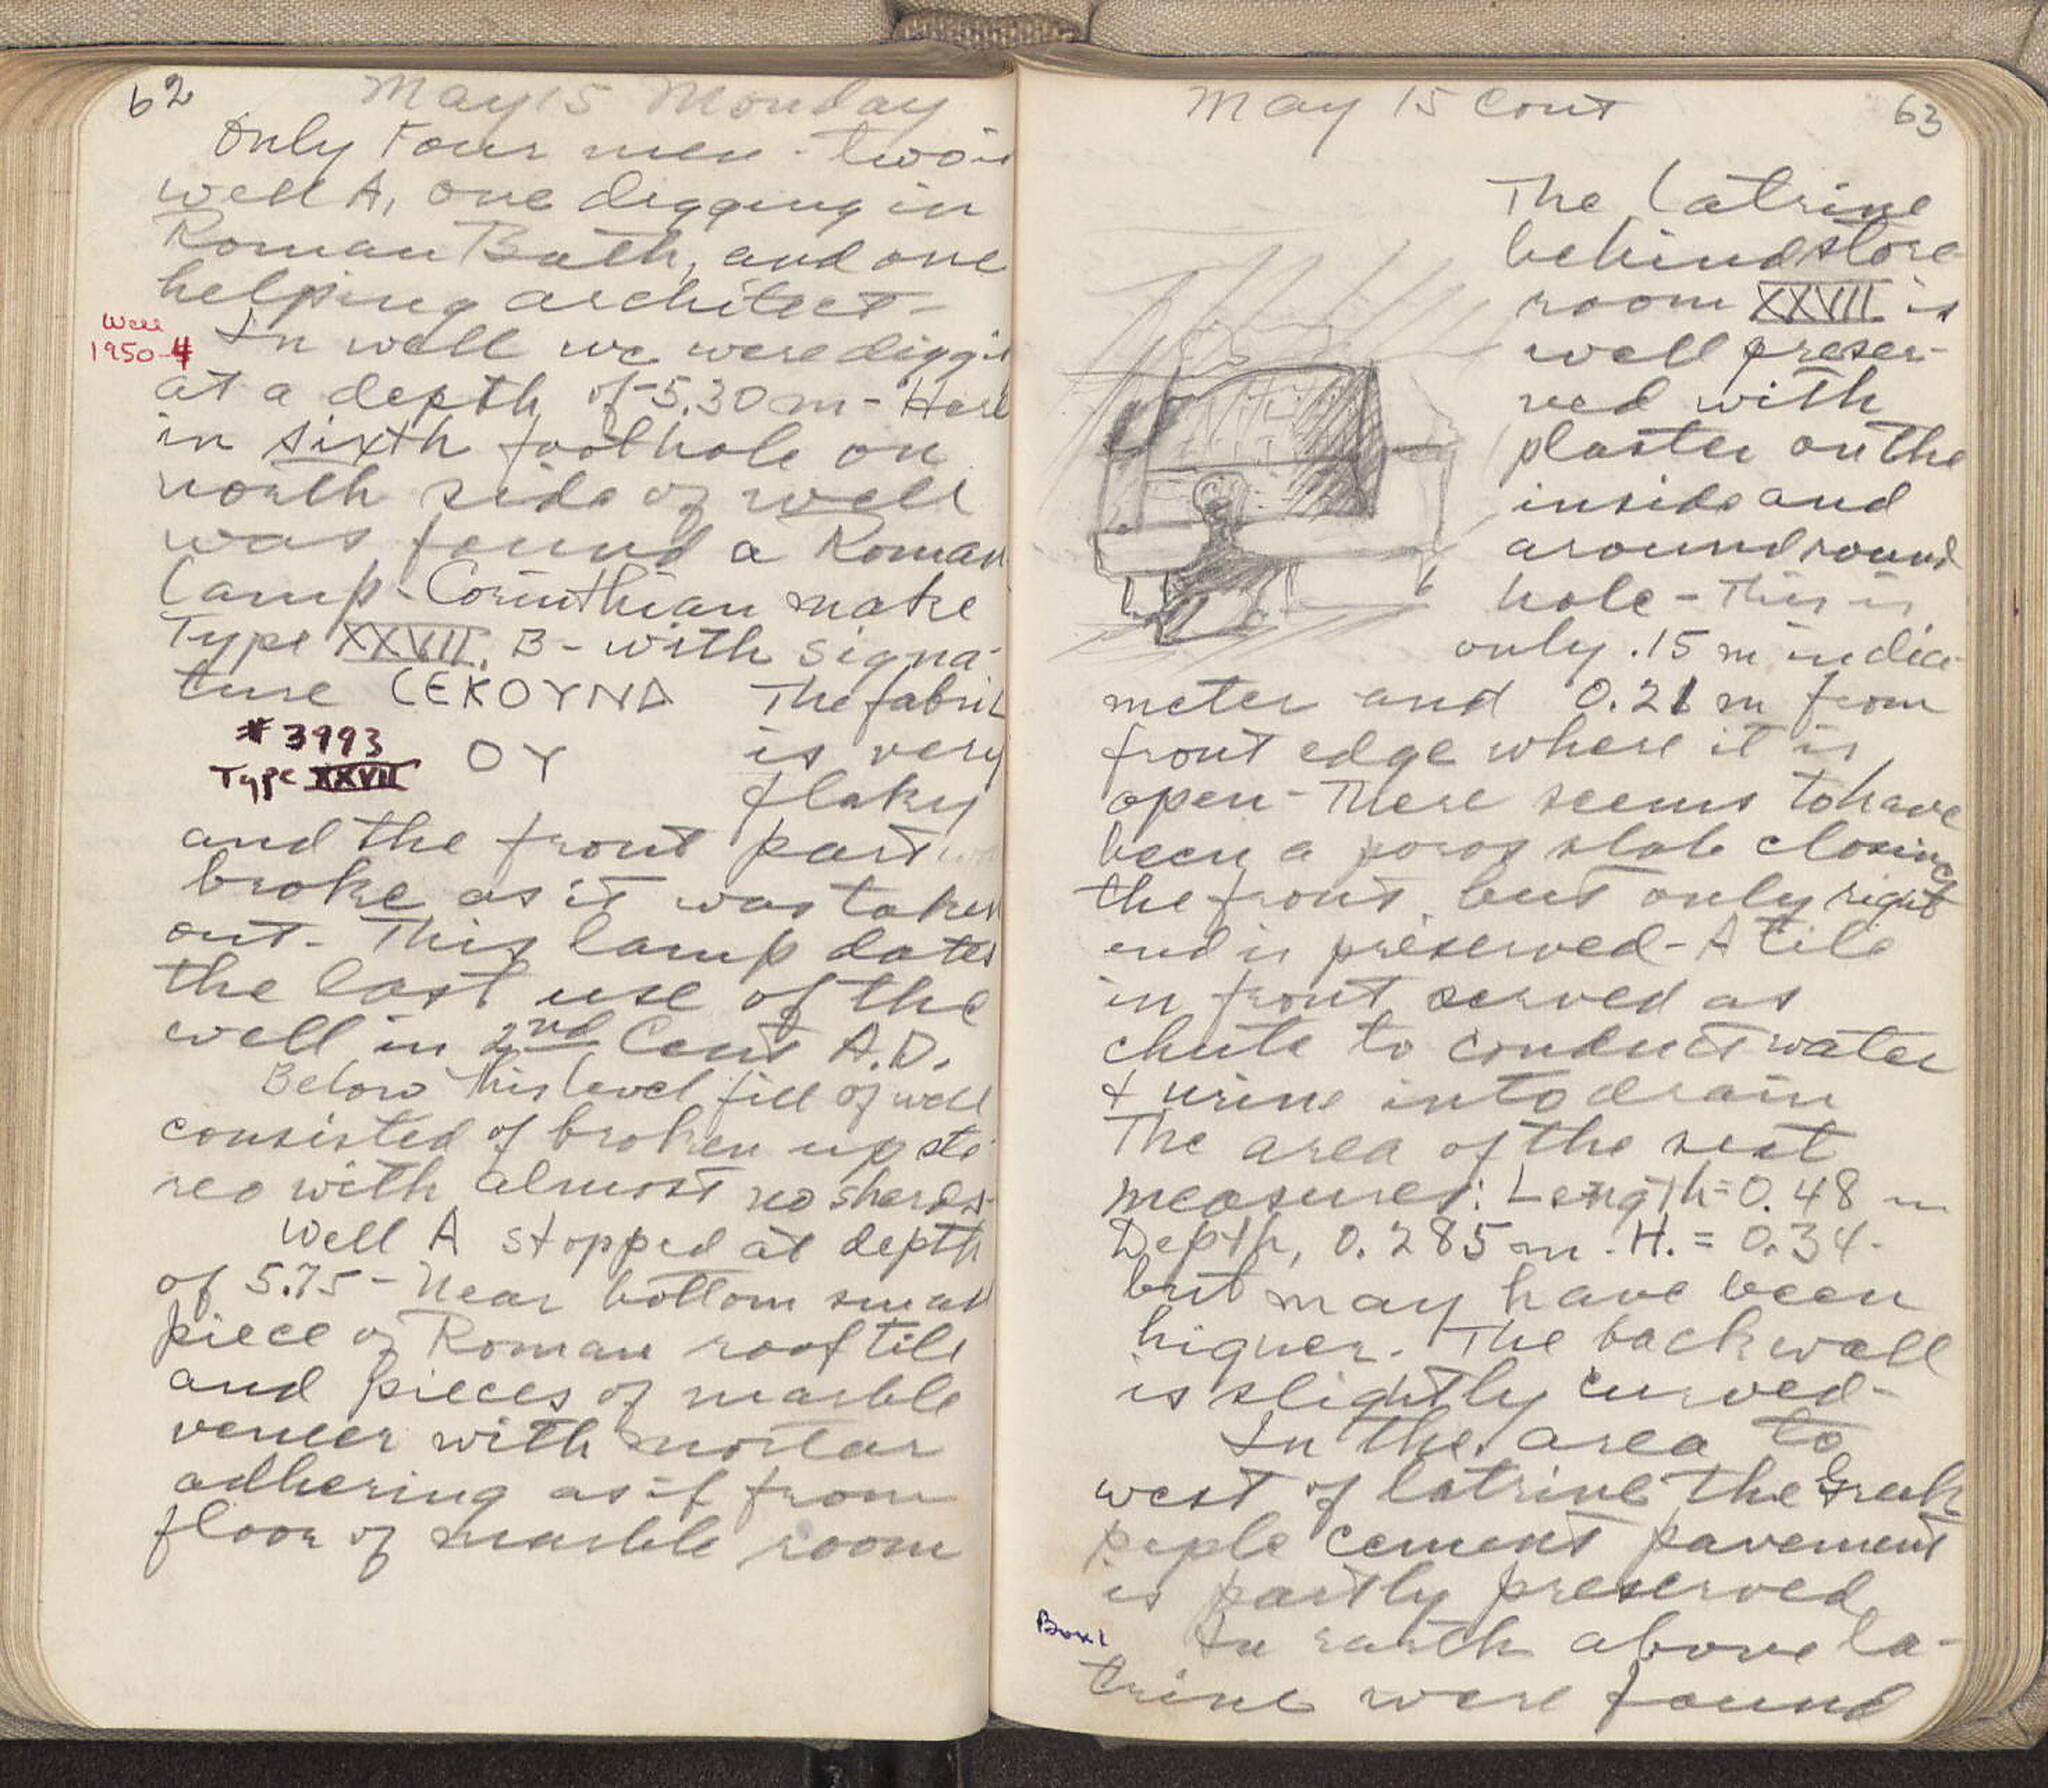 62
May 15 Monday
Only Four men - two in
well A, one digging in
Roman Bath, and one
helping architect -
Well
1950-4
In well we were diggi
at a depth of 5.30 m - Here
in sixth foothole on
north side of well
was found a Roman
Lamp - Corinthian make
Type XXVII, B - with signa-
ture CEKOYND The fabric
#3993
Type XXVII
OY is very
flaky
and the front part
broke as it was taken
out - This lamp dates
the last use of the
well in 2nd Cent A.D.
Below this level fill of well
consisted of broken up ste
reo with almost no sherds -
Well A stopped at depth
of 5.75 - Near bottom small
piece of Roman roof tile
and pieces of marble
veneer with mortar
adhering as if from
floor of marble room
May 15 Cont
63
The latrine
behind store
room XXVII is
well preser-
ved with
plaster on the
inside and
around round
hole - This is
only .15 m in dia-
meter and 0.21 m from
front edge where it is
open - There seems to have
been a poros slab closing
the front but only right
end is preserved - A tile
in front served as
chute to conduct water
+ urine into drain
The area of the seat
measures: Length = 0.48 m
Depth, 0.285 m. H. = 0.34 -
but may have been
higher. The back wall
is slightly curved -
In the area to
west of latrine the Greek
peple cement pavement
is partly preserved
Box 1
In earth above la-
trine were found